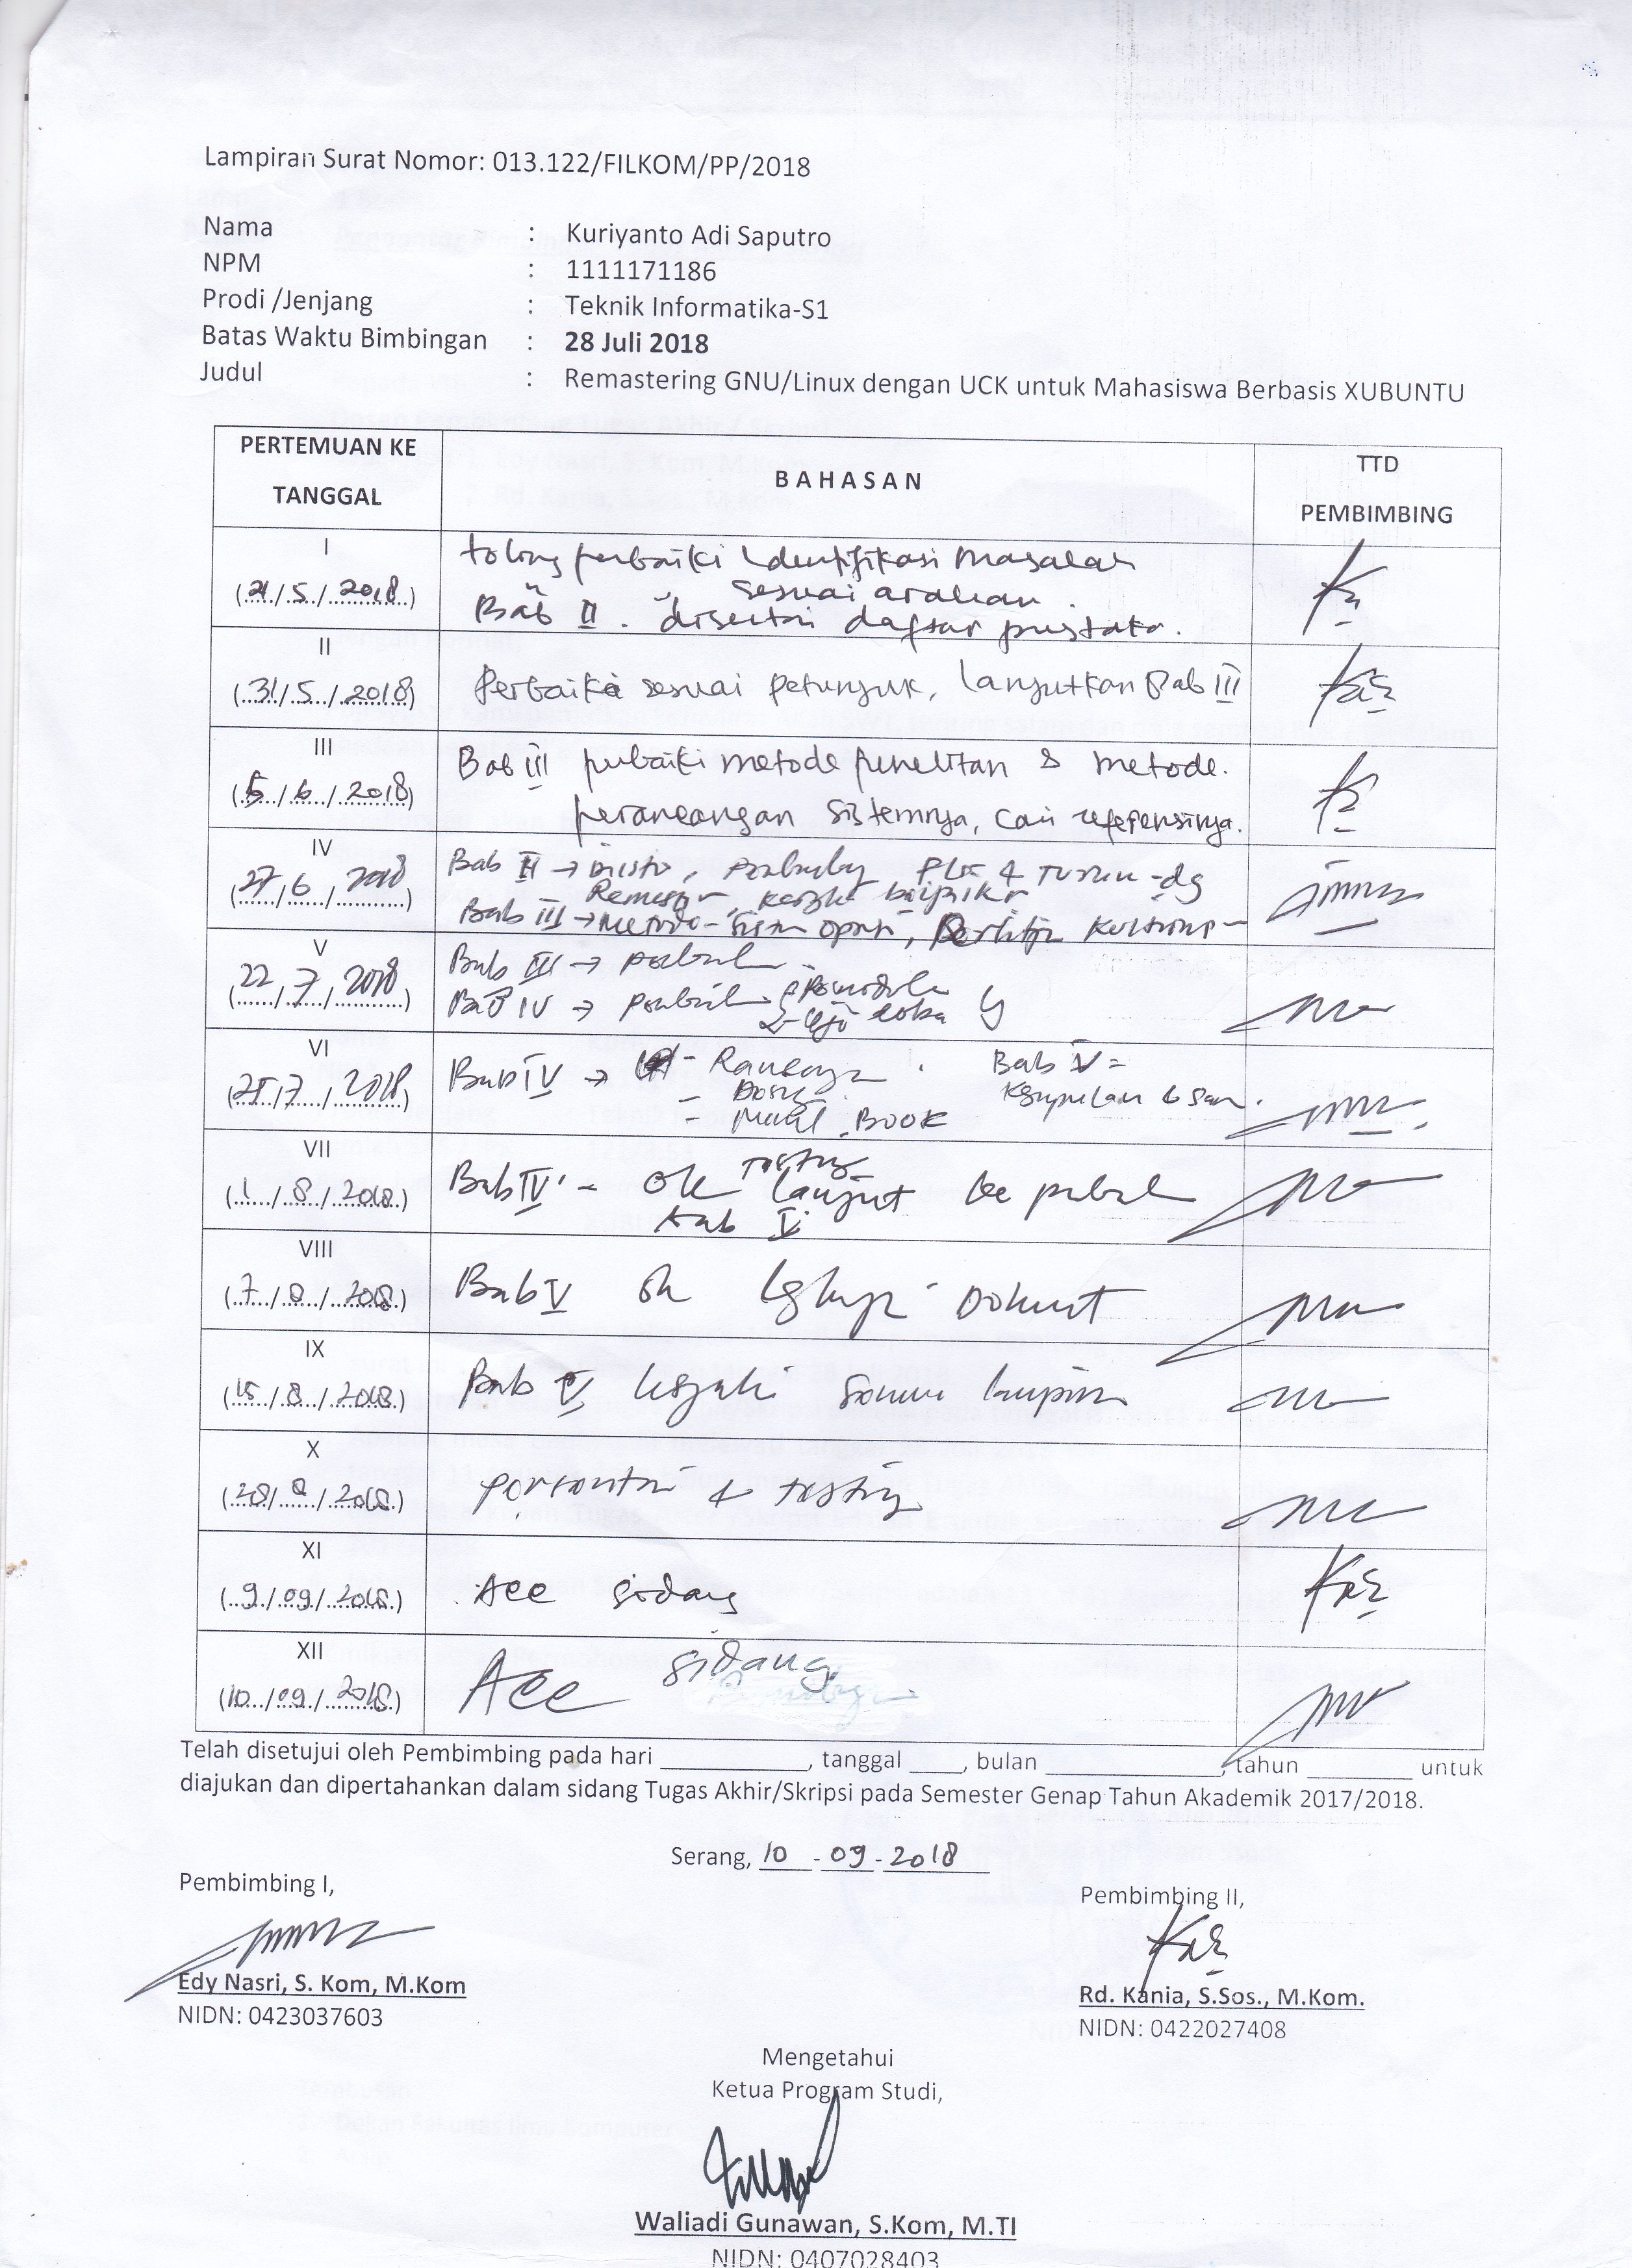 Lampiran Surat Nomor: 013.122/FILKOM/PP/2018
Nama : Kuriyanto Adi Saputro
NPM : 1111171186
Prodi /Jenjang : Teknik Informatika-S1
Batas Waktu Bimbingan : 28 Juli 2018
Judul : Remastering GNU/Linux dengan UCK untuk Mahasiswa Berbasis XUBUNTU
PERTEMUAN KE
TANGGAL
BAHASAN
TTD
PEMBIMBING
I
(21/5/2018)
tolong perbaiki Identifikasi Masalah
sesuai arahan
Bab II. disertai daftar pustaka.
II
(31/5/2018)
Perbaiki sesuai petunjuk, lanjutkan Bab III
III
(5/6/2018)
Bab III perbaiki metode penelitan & metode.
perancangan sistemnya, cari referensinya.
IV
(27/6/2018)
Bab II →
Bab III → Metode
V
(22/7/2018)
Bab III →
Bab IV →
2. Uji coba
VI
(25/7/2018)
Bab IV →
- BOOK
Bab V =
VII
(1/8/2018)
Bab IV - Ok Testing lanjut ke
bab V
VIII
(7/8/2018)
Bab V ok
IX
(15/8/2018)
Bab V
X
(28/8/2018)
& testing
XI
(9/09/2018)
Acc sidang
XII
(10/09/2018)
Acc sidang
Telah disetujui oleh Pembimbing pada hari ____, tanggal ____, bulan ____, tahun ____ untuk
diajukan dan dipertahankan dalam sidang Tugas Akhir/Skripsi pada Semester Genap Tahun Akademik 2017/2018.
Serang, 10 - 09 - 2018
Pembimbing I,
Pembimbing II,
Edy Nasri, S. Kom, M.Kom
NIDN: 0423037603
Rd. Kania, S.Sos., M.Kom.
NIDN: 0422027408
Mengetahui
Ketua Program Studi,
Waliadi Gunawan, S.Kom, M.TI
NIDN: 0407028403